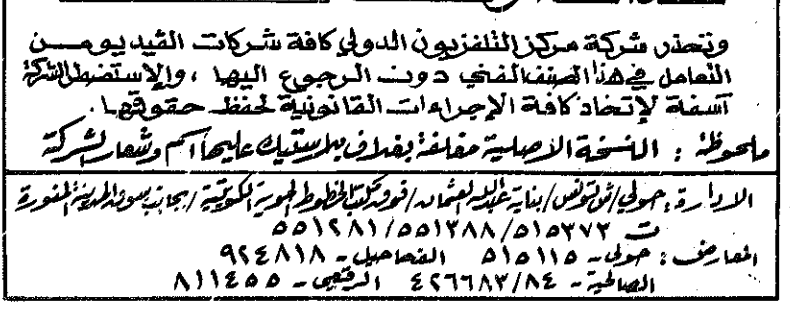 وتحذر شركة مركز التلفزيون الدولي كافة شركات الفيديو من
التعامل في هذا الصنف الفني دون الرجوع اليها ، وإلا ستضطر الشركة
آسفة لإتخاذ كافة الإجراءات القانونية لحفظ حقوقها .
ملحوظة : النسخة الاصلية مغلفة بغلاف بلاستيك عليها اسم وشعار الشركة
الادارة : حولي / ش تونس / بناية عبدالله العثمان / فوق مكتب الخطوط الجوية الكويتية / بجانب سوق المدينة المنورة
ت ٥١٥٣٧٢ / ٥٥١٣٨٨ / ٥٥١٢٨١
المعارض : حولي - ٥١٥١١٥ الفحاحيل - ٩٢٤٨١٨
الصالحية - ٤٢٦٦٨٣/٨٤ الرقعي - ٨١١٤٥٥